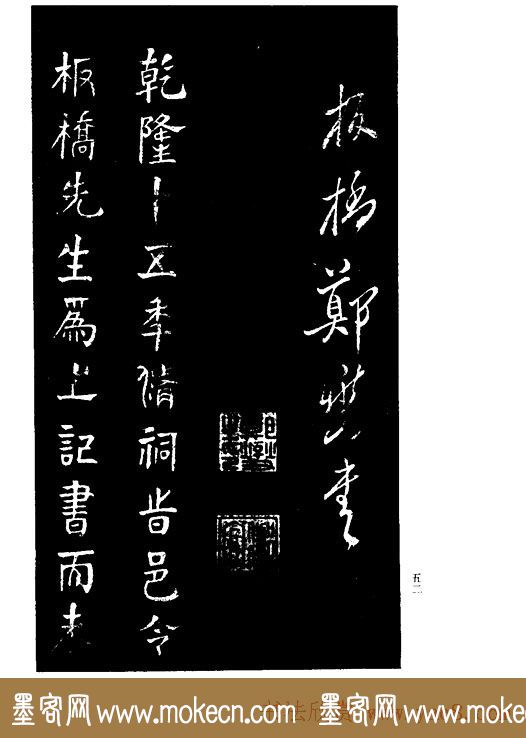 板橋鄭燮書
乾隆十五季脩祠旹邑令
板橋先生為之記書而未
五二
墨客网 www.mokecn.com 墨客网 www.mokecn.com